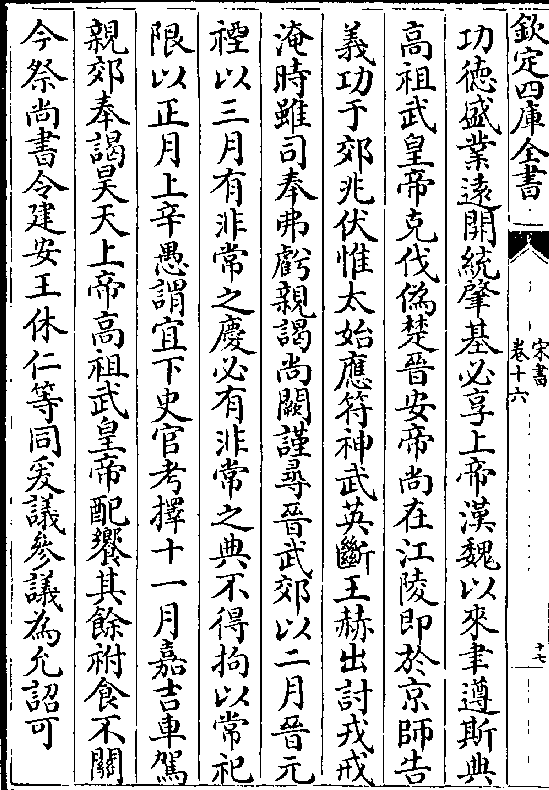 欽定四庫全書
宋書
卷十六
十七
功德盛業遠開統肇基必享上帝漢魏以來聿遵斯典
高祖武皇帝克伐偽楚晉安帝尚在江陵即於京師告
義功于郊兆伏惟太始應符神武英斷王赫出討戎戒
淹時雖司奉弗虧親謁尚闕謹尋晉武郊以二月晉元
禋以三月有非常之慶必有非常之典不得拘以常祀
限以正月上辛愚謂宜下史官考擇十一月嘉吉車駕
親郊奉謁昊天上帝高祖武皇帝配饗其餘祔食不關
今祭尚書令建安王休仁等同爰議參議為允詔可